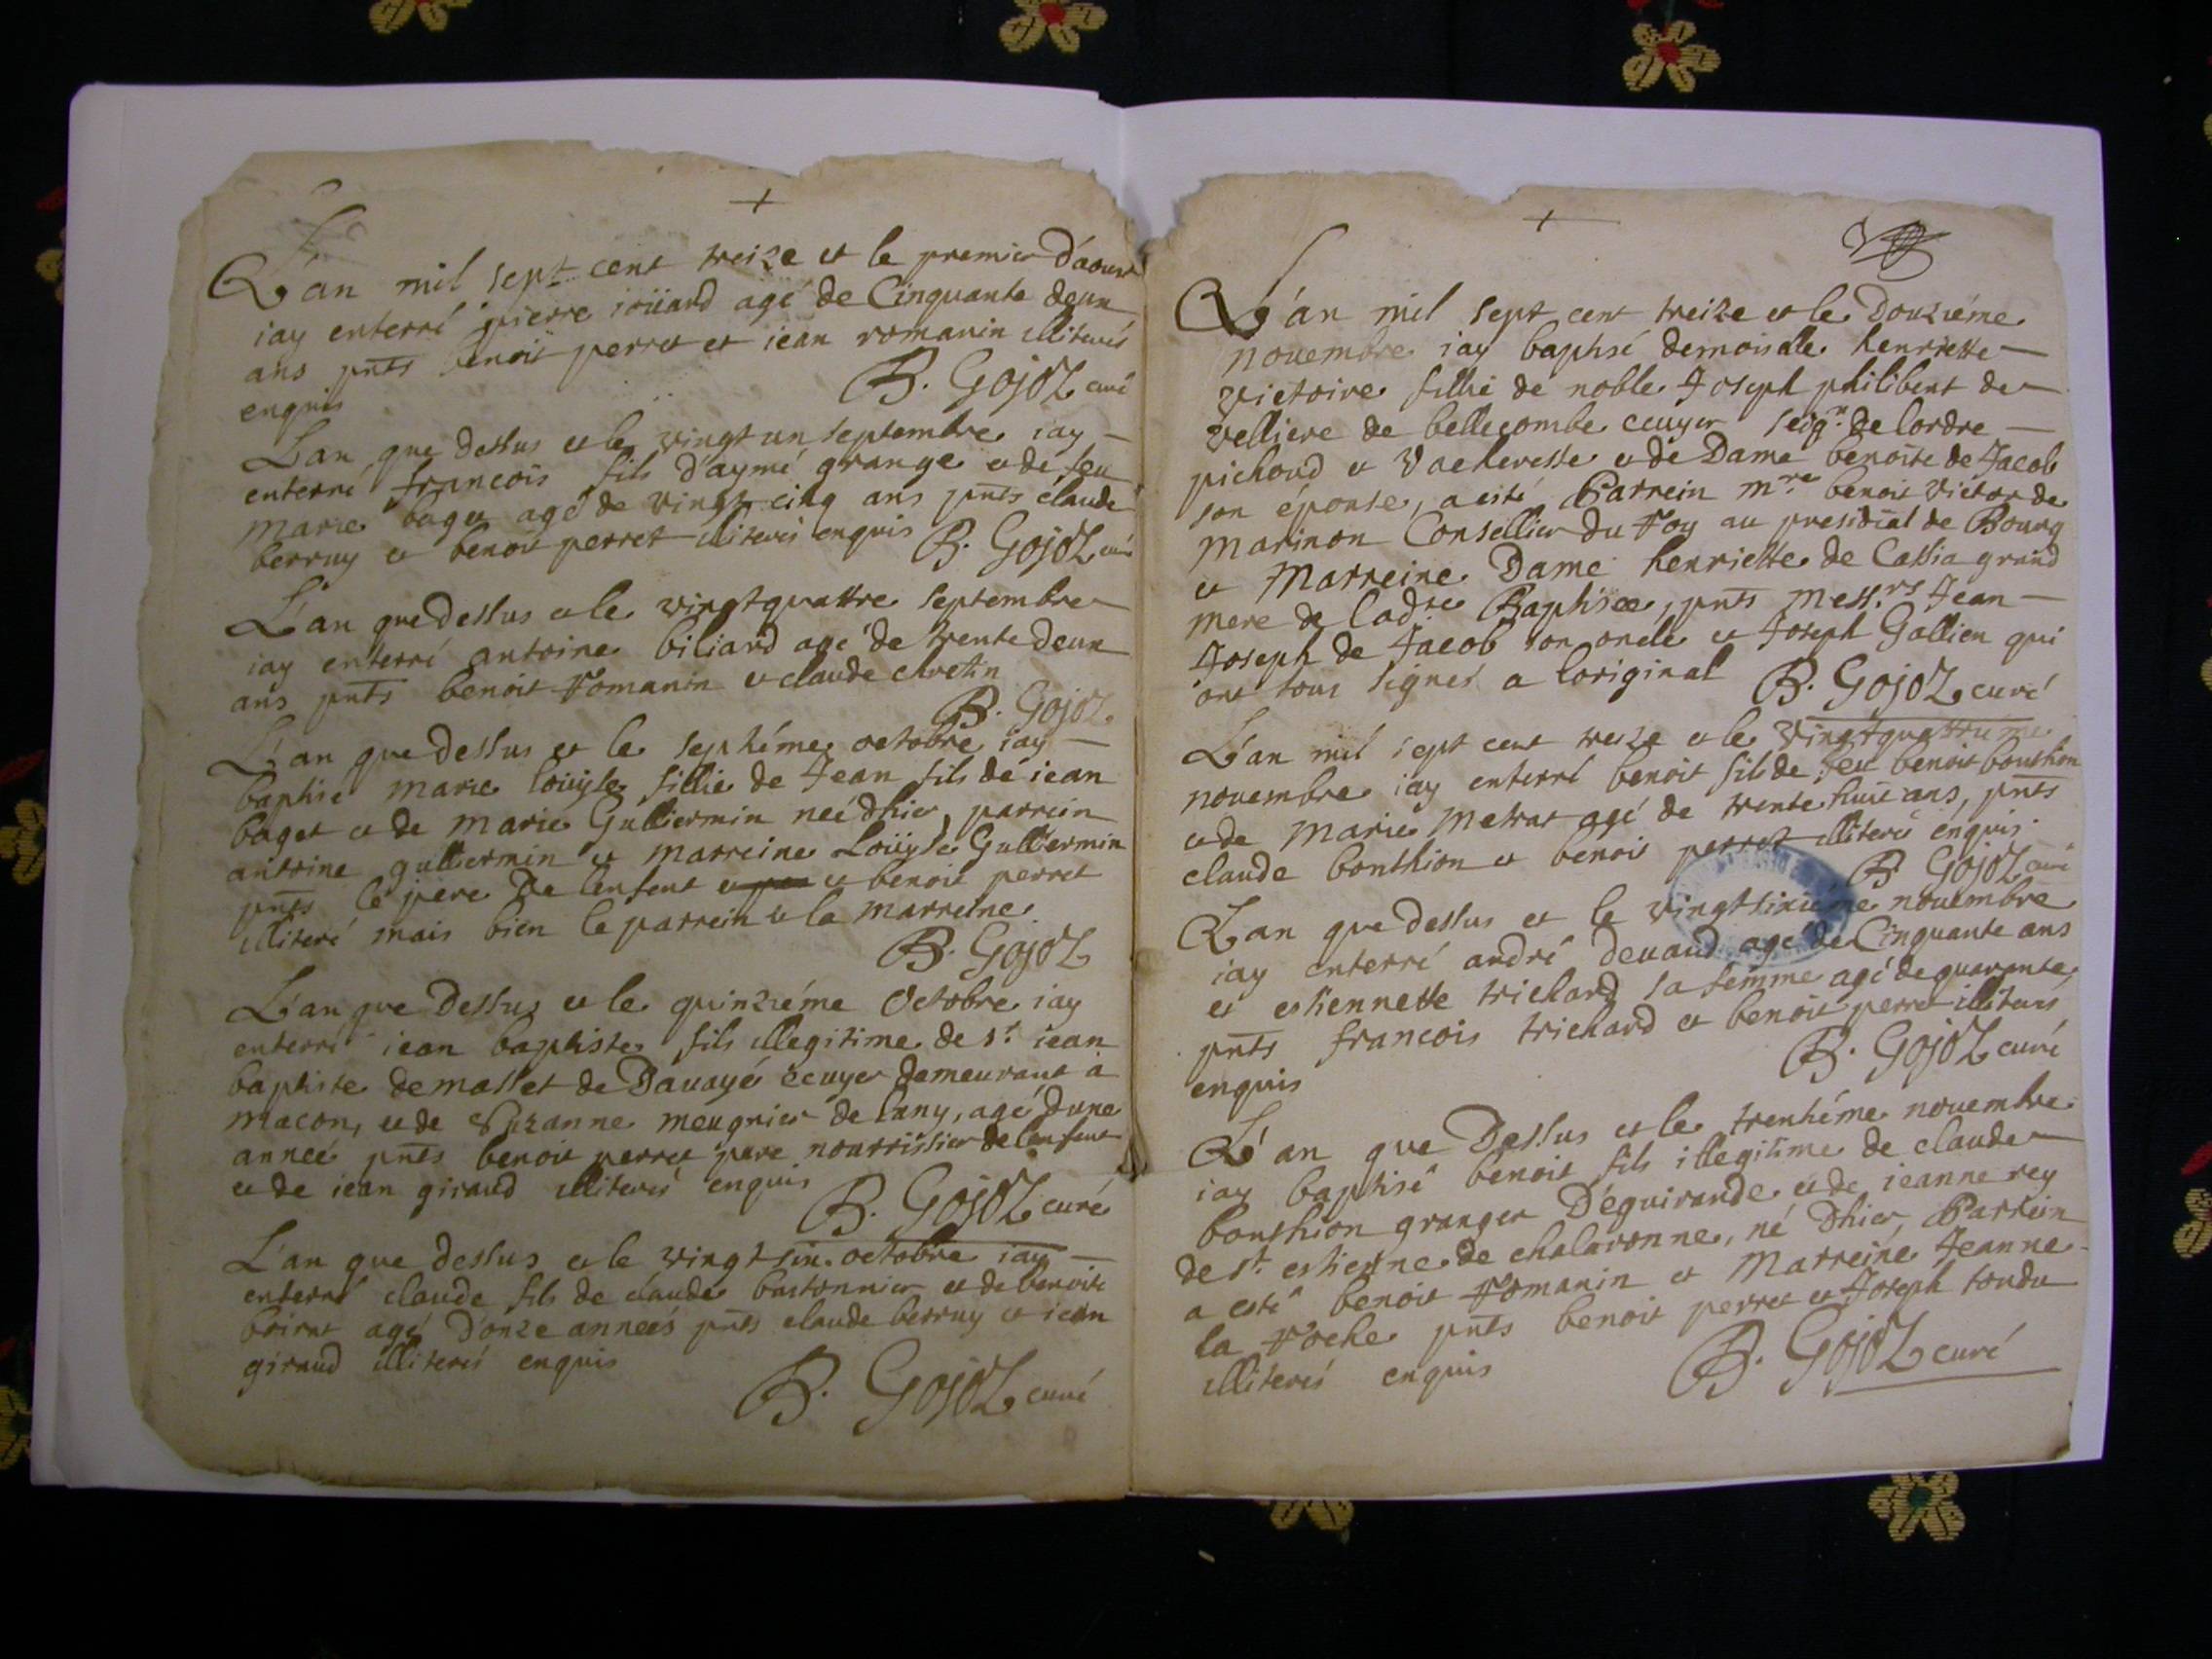 L'an mil sept cent treize et le premier d'aoust
iay enterré pierre ioüand agé de Cinquante deux
ans pnts benoit perret et iean romanin illiterés
enquis B. Gojoz curé
L'an que dessus et le vingt un septembre iay
enterré francois fils d'aymé grange et de feu
marie baget agé de vingt cinq ans pnts claude
berruy et benoit perret illiterés enquis B. Gojoz curé
L'an que dessus et le vingtquattre septembre
iay enterré antoine biliard agé de trente deux
ans pnts benoit Romanin et claude chretin
B. Gojoz
L'an que dessus et le septiéme octobre iay
baptisé marie loüyse fillie de Jean fils de iean
baget et de marie Gulliermin neé dhier, parrein
antoine gulliermin et marreine Loüyse Gulliermin
pnts le pere De lenfent et benoit perret
illiteré mais bien le parrein et la marreine.
B. Gojoz
L'an que Dessus et le quinziéme Octobre iay
enterré iean baptiste fils illegitime de sr iean
baptiste demasset de Dauayé écuyer demeurant à
macon, et de Suzanne meugnier de luny, agé dune
anneé pnts benoit perret pere nourrissier de lenfent
et de iean giraud illiterés enquis
B. Gojoz curé
L'an que dessus et le vingt six octobre iay
enterré claude fils de claude bastonnier et de benoite
boirat agé D'onze anneés pnts claude berruy et iean
giraud illiterés enquis
B. Gojoz curé
L'an mil sept cent treize et le Douziéme
nouembre iay baptisé demoiselle henriette
victoire fillie de noble Joseph philibert de
velliere de bellecombe ecuyer seigr. de lordre
pichoud et Vacheresse et de Dame benoite de Jacob
son épouse, a esté Parrein mre benoit victor de
marinon Consellier du Roy au presidial de Bourg
et Marreine Dame henriette de Cassia grand
mere de ladte Baptisée, pnts Messrs Jean
Joseph de Jacob son oncle et Joseph Gallien qui
ont tous signés a loriginal B. Gojoz curé
L'an mil sept cent treize et le vingtquattriéme
nouembre iay enterré benoit fils de feu benoit bouthion
et de marie metrat agé de trente huit ans, pnts
claude bouthion et benoit perret illiterés enquis
B. Gojoz curé
L'an que dessus et le vingtsixiéme nouembre
iay enterré andré deuaud agé de Cinquante ans
et estiennette trichard sa femme agé de quarante,
pnts francois trichard et benoit perret illiterés
enquis B. Gojoz curé
L'an que Dessus et le trentiéme nouembre
iay baptisé benoit fils illegitime de claude
bouthion granger D'eguirande et de ieanne rey
de st. estienne de chalaronne, né Dhier, Parrein
a esté benoit Romanin et Marreine Jeanne
la Roche pnts benoit perret et Joseph tondu
illiterés enquis B. Gojoz curé